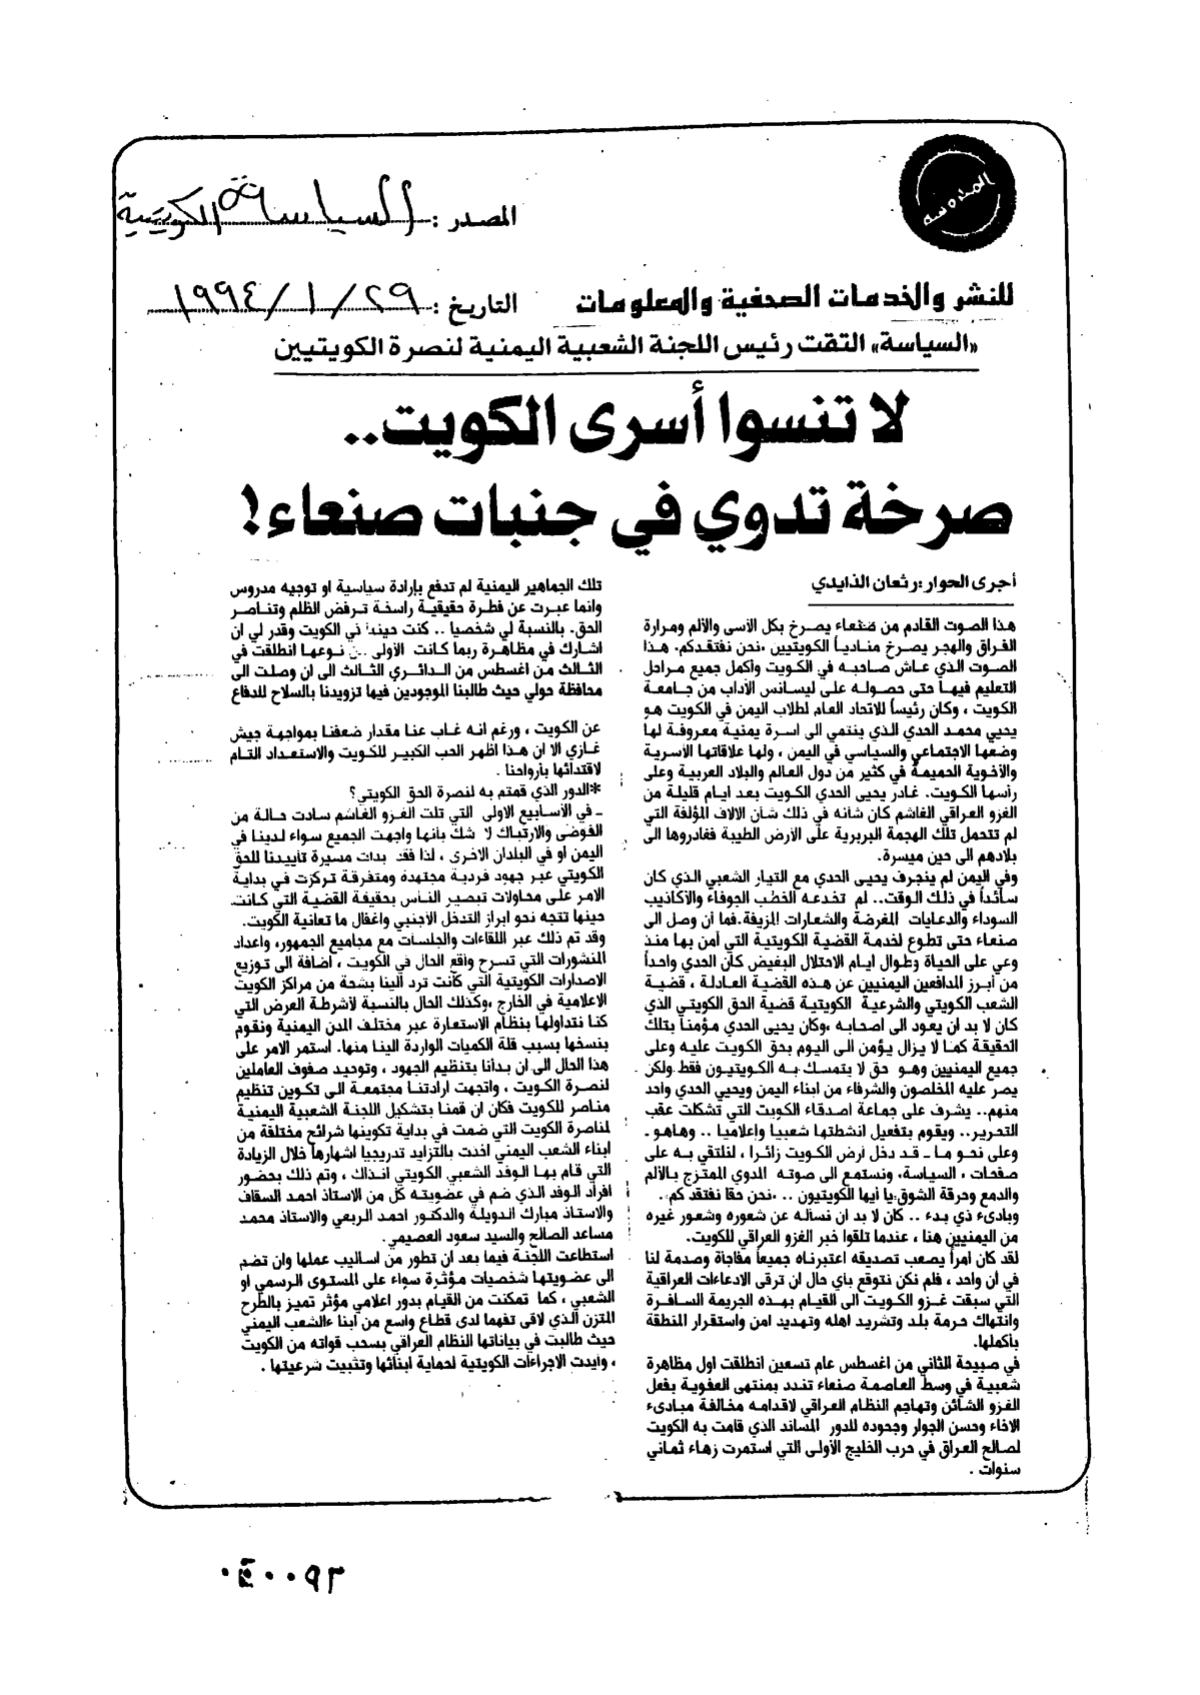 المدوسه
المصدر : السياسة الكويتية
للنشر والخدمات الصحفية والمعلومات
التاريخ : ٢٩ / ١ / ١٩٩٤
«السياسة» التقت رئيس اللجنة الشعبية اليمنية لنصرة الكويتيين
لا تنسوا أسرى الكويت..
صرخة تدوي في جنبات صنعاء!
أجرى الحوار :رثعان الذايدي
هذا الصوت القادم من صنعاء يصرخ بكل الأسى والألم ومرارة
الفراق والهجر يصرخ منادياً الكويتيين ،نحن نفتقدكم، هذا
الصوت الذي عاش صاحبه في الكويت وأكمل جميع مراحل
التعليم فيها حتى حصوله على ليسانس الآداب من جامعة
الكويت ، وكان رئيساً للاتحاد العام لطلاب اليمن في الكويت هو
يحيي محمد الحدي الذي ينتمي الى اسرة يمنية معروفة لها
وضعها الاجتماعي والسياسي في اليمن ، ولها علاقاتها الأسرية
والأخوية الحميمة في كثير من دول العالم والبلاد العربية وعلى
رأسها الكويت. غادر يحيى الحدي الكويت بعد ايام قليلة من
الغزو العراقي الغاشم كان شأنه في ذلك شأن الالاف المؤلفة التي
لم تتحمل تلك الهجمة البربرية على الأرض الطيبة فغادروها الى
بلادهم الى حين ميسرة.
وفي اليمن لم ينجرف يحيى الحدي مع التيار الشعبي الذي كان
سائداً في ذلك الوقت.. لم تخدعه الخطب الجوفاء والأكاذيب
السوداء والدعايات المغرضة والشعارات المزيفة.فما أن وصل الى
صنعاء حتى تطوع لخدمة القضية الكويتية التي آمن بها منذ
وعي على الحياة وطوال ايام الاحتلال البغيض كان الحدي واحداً
من أبرز المدافعين اليمنيين عن هذه القضية العادلة ، قضية
الشعب الكويتي والشرعية الكويتية قضية الحق الكويتي الذي
كان لا بد ان يعود الى اصحابه ،وكان يحيى الحدي مؤمناً بتلك
الحقيقة كما لا يزال يؤمن الى اليوم بحق الكويت عليه وعلى
جميع اليمنيين وهو حق لا يتمسك به الكويتيون فقط ولكن
يصر عليه المخلصون والشرفاء من ابناء اليمن ويحيى الحدي واحد
منهم.. يشرف على جماعة اصدقاء الكويت التي تشكلت عقب
التحرير.. ويقوم بتفعيل انشطتها شعبيا وإعلاميا .. وهاهو ـ
وعلى نحو ما ـ قد دخل أرض الكويت زائرا ، لنلتقي به على
صفحات ، السياسة، ونستمع الى صوته المدوي الممتزج بالألم
والدمع وحرقة الشوق:يا أيها الكويتيون .. ،نحن حقا نفتقد كم،.
وبادىء ذي بدء .. كان لا بد ان نسأله عن شعوره وشعور غيره
من اليمنيين هنا ، عندما تلقوا خبر الغزو العراقي للكويت.
لقد كان امراً يصعب تصديقه اعتبرناه جميعاً مفاجأة وصدمة لنا
في ان واحد ، فلم نكن نتوقع بأي حال ان ترقى الادعاءات العراقية
التي سبقت غزو الكويت الى القيام بهذه الجريمة السافرة
وانتهاك حرمة بلد وتشريد اهله وتهديد امن واستقرار المنطقة
بأكملها.
في صبيحة الثاني من اغسطس عام تسعين انطلقت اول مظاهرة
شعبية في وسط العاصمة صنعاء تندد بمنتهى العفوية بفعل
الغزو الشائن وتهاجم النظام العراقي لاقدامه مخالفة مبادىء
الاخاء وحسن الجوار وجحوده للدور المساند الذي قامت به الكويت
لصالح العراق في حرب الخليج الأولى التي استمرت زهاء ثماني
سنوات .
تلك الجماهير اليمنية لم تدفع بإرادة سياسية او توجيه مدروس
وانما عبرت عن فطرة حقيقية راسخة ترفض الظلم وتناصر
الحق. بالنسبة لي شخصيا .. كنت حينها في الكويت وقدر لي ان
اشارك في مظاهرة ربما كانت الأولى من نوعها انطلقت في
الثالث من اغسطس من الدائري الثالث الى ان وصلت الى
محافظة حولي حيث طالبنا الموجودين فيها تزويدنا بالسلاح للدفاع
عن الكويت ، ورغم انه غاب عنا مقدار ضعفنا بمواجهة جيش
غازي الا ان هذا اظهر الحب الكبير للكويت والاستعداد التام
لافتدائها بأرواحنا .
*الدور الذي قمتم به لنصرة الحق الكويتي؟
ـ في الأسابيع الاولى التي تلت الغزو الغاشم سادت حالة من
الفوضى والارتباك لا شك بأنها واجهت الجميع سواء لدينا في
اليمن او في البلدان الاخرى ، لذا فقد بدات مسيرة تأييدنا للحق
الكويتي عبر جهود فردية مجتهدة ومتفرقة تركزت في بداية
الامر على محاولات تبصير الناس بحقيقة القضية التي كانت
حينها تتجه نحو ابراز التدخل الأجنبي واغفال ما تعانية الكويت.
وقد تم ذلك عبر اللقاءات والجلسات مع مجاميع الجمهور، واعداد
المنشورات التي تسرح واقع الحال في الكويت ، اضافة الى توزيع
الاصدارات الكويتية التي كانت ترد الينا بشحة من مراكز الكويت
الاعلامية في الخارج ،وكذلك الحال بالنسبة لأشرطة العرض التي
كنا نتداولها بنظام الاستعارة عبر مختلف المدن اليمنية ونقوم
بنسخها بسبب قلة الكميات الواردة الينا منها. استمر الامر على
هذا الحال الى ان بدأنا بتنظيم الجهود ، وتوحيد صفوف العاملين
لنصرة الكويت ، واتجهت ارادتنا مجتمعة الى تكوين تنظيم
مناصر للكويت فكان ان قمنا بتشكيل اللجنة الشعبية اليمنية
لمناصرة الكويت التي ضمت في بداية تكوينها شرائح مختلفة من
ابناء الشعب اليمني اخذت بالتزايد تدريجيا اشهارها خلال الزيادة
التي قام بها الوفد الشعبي الكويتي انذاك ، وتم ذلك بحضور
افراد الوفد الذي ضم في عضويته كل من الاستاذ احمد السقاف
والاستاذ مبارك الدويلة والدكتور احمد الربعي والاستاذ محمد
مساعد الصالح والسيد سعود العصيمي.
استطاعت اللجنة فيما بعد ان تطور من اساليب عملها وان تضم
الى عضويتها شخصيات مؤثرة سواء على المستوى الرسمي او
الشعبي ، كما تمكنت من القيام بدور اعلامي مؤثر تميز بالطرح
المتزن الذي لاقى تفهما لدى قطاع واسع من ابنا ءالشعب اليمني
حيث طالبت في بياناتها النظام العراقي بسحب قواته من الكويت
، وأيدت الاجراءات الكويتية لحماية ابنائها وتثبيت شرعيتها .